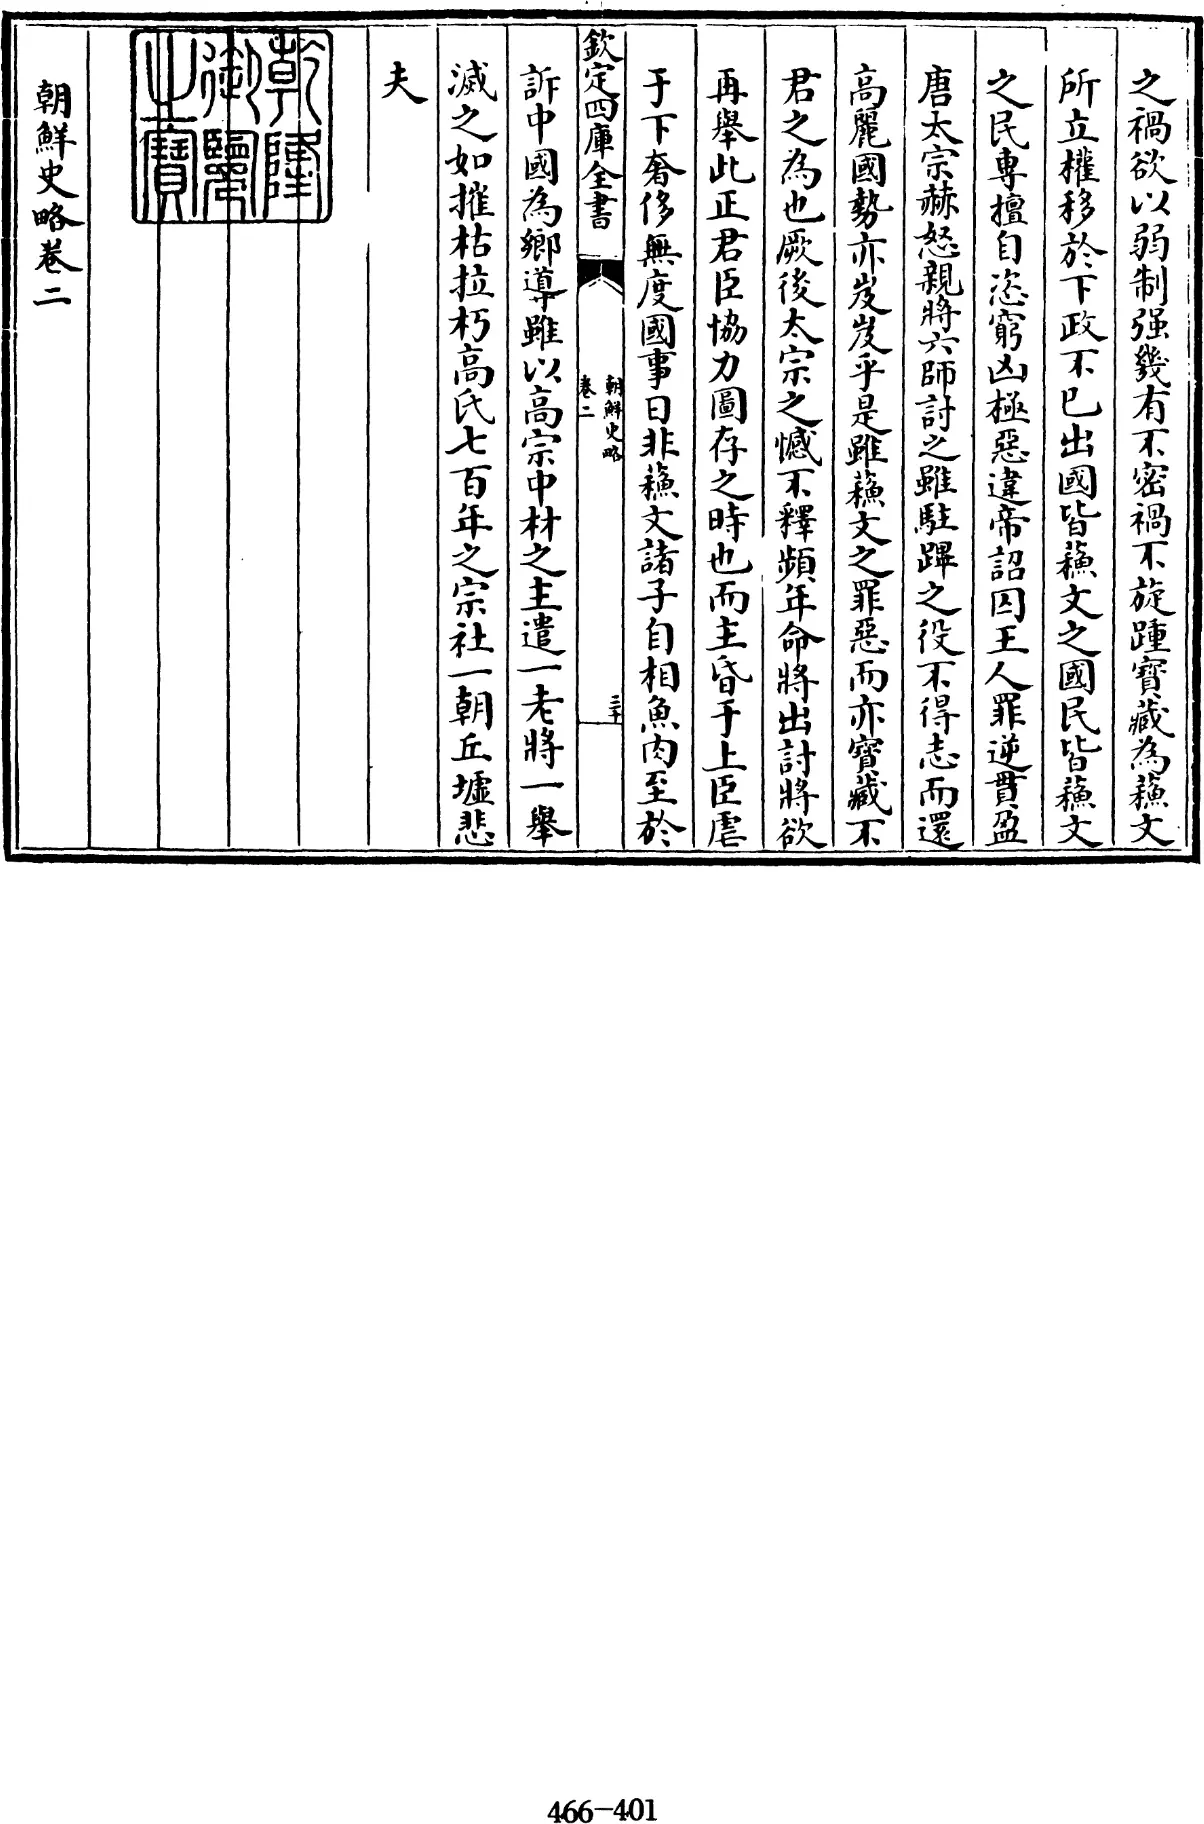 之禍欲以弱制强幾有不密禍不旋踵寶藏為蘓文
所立權移於下政不已出國皆蘓文之國民皆蘓文
之民專擅自恣窮凶極惡違帝詔囚王人罪逆貫盈
唐太宗赫怒親將六師討之雖駐蹕之役不得志而還
高麗國勢亦岌岌乎是雖蘓文之罪惡而亦寶藏不
君之為也厥後太宗之憾不釋頻年命將出討將欲
再舉此正君臣協力圖存之時也而主昏于上臣虐
于下奢侈無度國事日非蘓文諸子自相魚肉至於
欽定四庫全書
朝鮮史略
卷二
三十
訴中國為鄉導雖以高宗中材之主遣一老將一舉
滅之如摧枯拉朽高氏七百年之宗社一朝丘墟悲
夫
乾隆
御覽
之寶
朝鮮史略卷二
466-401